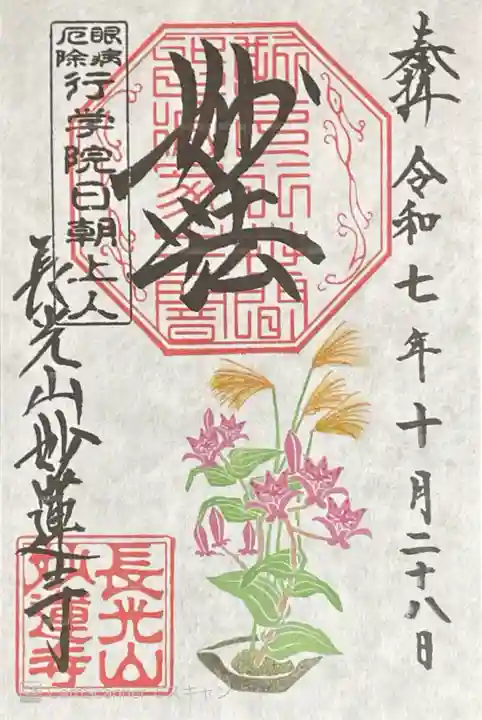 奉拝
令和七年十月二十八日
妙法
眼病
厄除
行学院日朝上人
長光山妙蓮寺
長光山
妙蓮寺